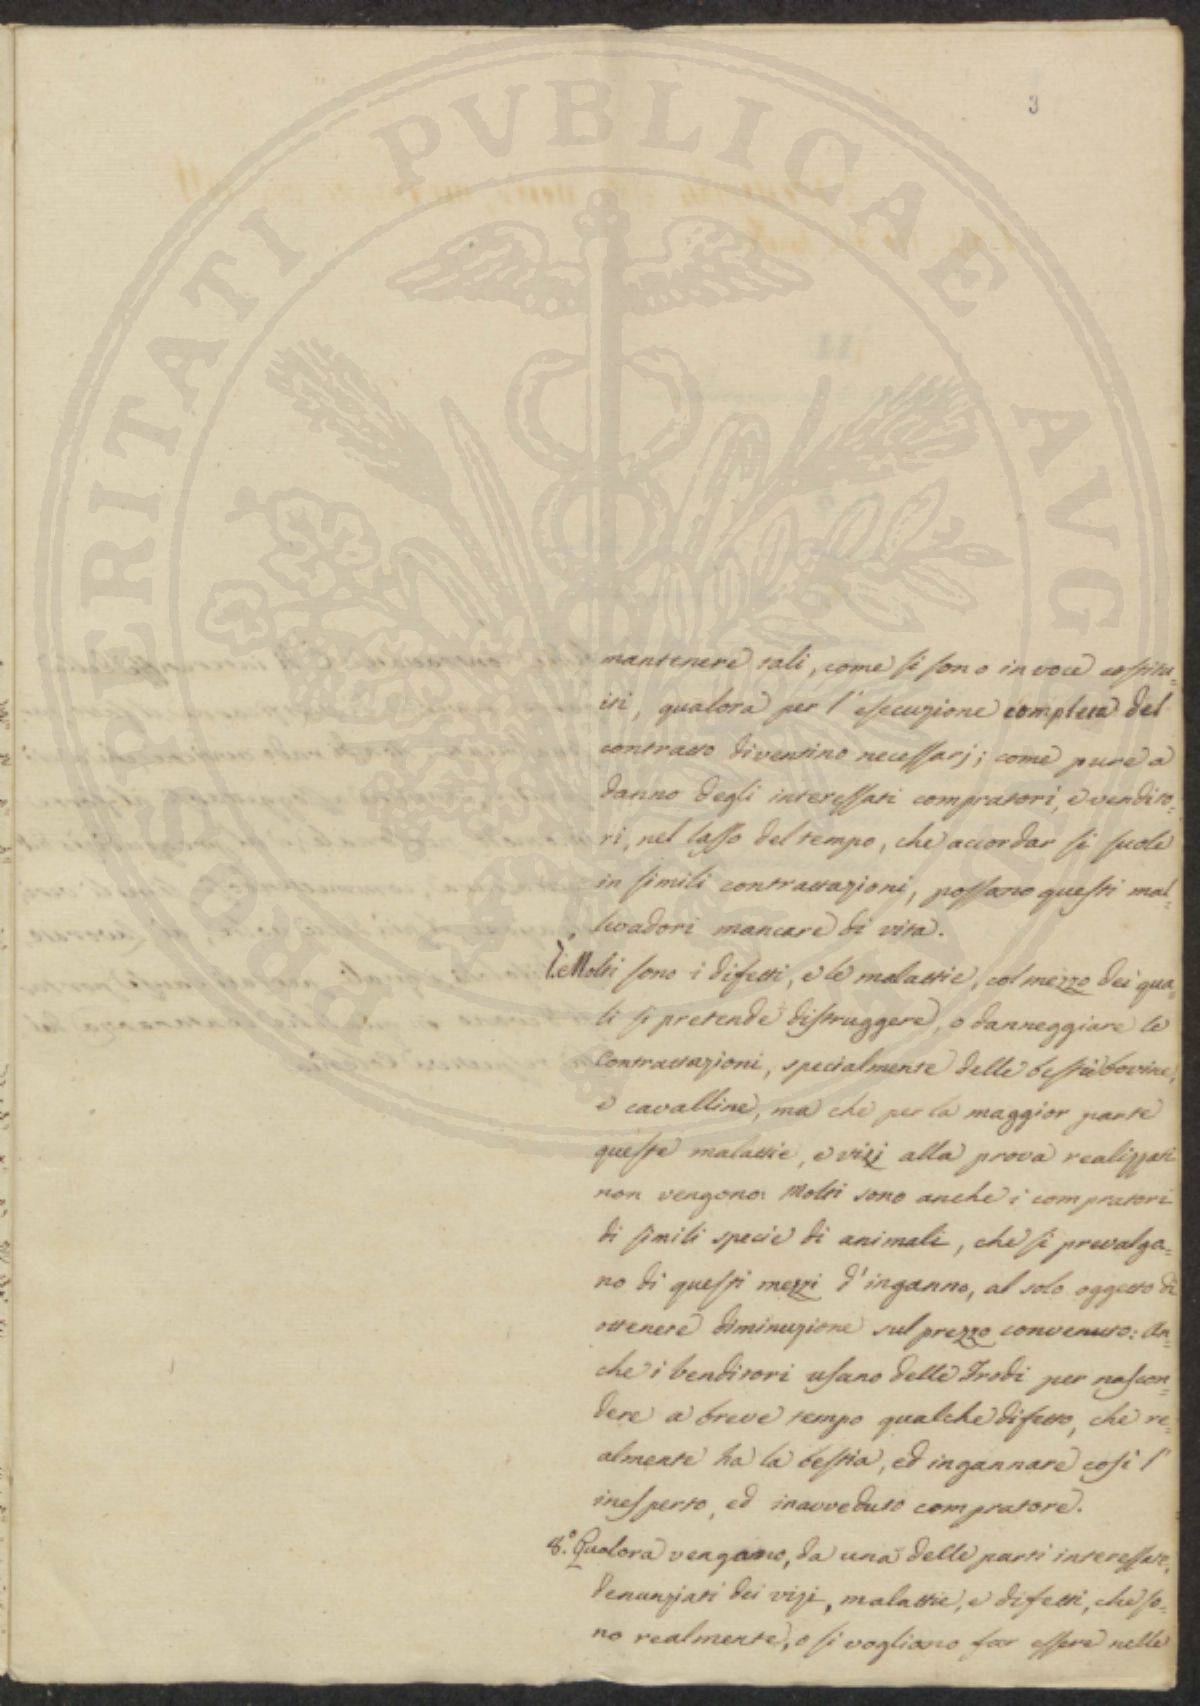 3
PROSPERITATI PVBLICAE AVG
mantenere tali, come si sono in voce costitu=
iti, qualora per l'esecuzione completa del
contratto diventino necessarj; come pure a
danno degli interessati compratori, e vendito=
ri, nel lasso del tempo, che accordar si suole
in simili contrattazioni, possano questi mal=
levadori mancare di vita.
7.° Molti sono i difetti, e le malattie, col mezzo dei qua=
li si pretende distruggere, o danneggiare le
Contrattazioni, specialmente delle bestie bovine,
e cavalline, ma che per la maggior parte
queste malattie, e vizj alla prova realizzati
non vengono: Molti sono anche i compratori
di simili specie di animali, che si prevalga=
no di questi mezzi d'inganno, al solo oggetto di
ottenere diminuzione sul prezzo convenuto: An=
che i venditori usano delle frodi per nascon=
dere a breve tempo qualche difetto, che re=
almente ha la bestia, ed ingannare così l'
inesperto, ed inavveduto compratore.
8.° Qualora vengano, da una delle parti interessate,
denunziati dei vizj, malattie, e difetti, che so=
no realmente, o si vogliono far essere nelle